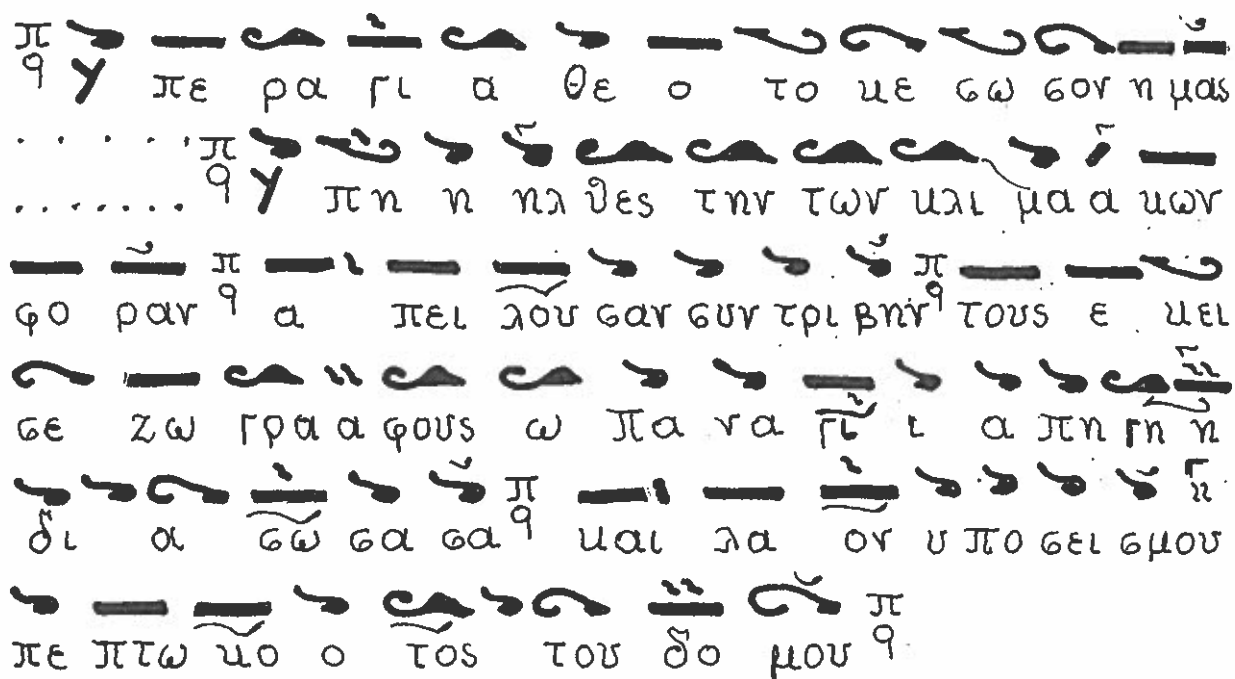 π q Υ πε ρα γι α θε ο το κε σω σον η μας
π q Υ πη η ηλ θες την των κλι μα α κων
φο ραν π q α πει λου σαν συν τρι βην π q τους ε κει
σε ζω γρα α φους ω πα να γι ι α πη γη η
δι α σω σα σα π q και λα ον υ πο σει σμου
πε πτω κο ο τος του δο μου π q